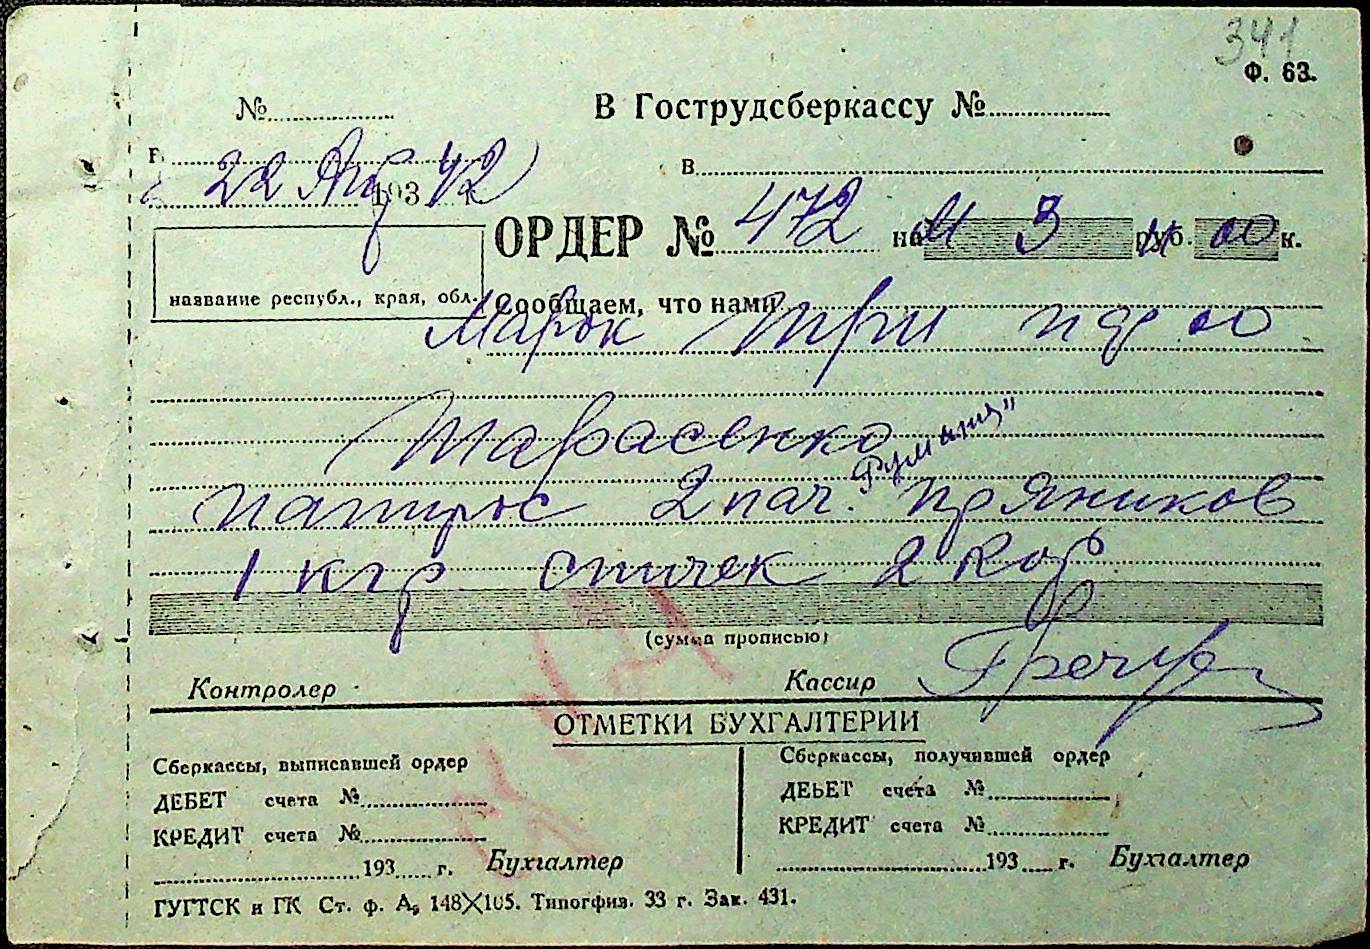 341
Ф. 63.
№ В Гострудсберкассу №
в 22 Авг 193 42 в
ОРДЕР № 472 на М 3 руб. 00 к.
название республ., края, обл.
Сообщаем, что нами
Марок три пф 00
Тарасенко
папирос 2 пач. "Румыния" пряников
1 кгр спичек 2 кор
(сумма прописью)
Контролер Кассир
ОТМЕТКИ БУХГАЛТЕРИИ
Сберкассы, выписавшей ордер Сберкассы, получившей ордер
ДЕБЕТ счета № ДЕБЕТ счета №
КРЕДИТ счета № КРЕДИТ счета №
193 г. Бухгалтер 193 г. Бухгалтер
ГУГТСК и ГК Ст. ф. А₆ 148×105. Типогфиз. 33 г. Зак. 431.